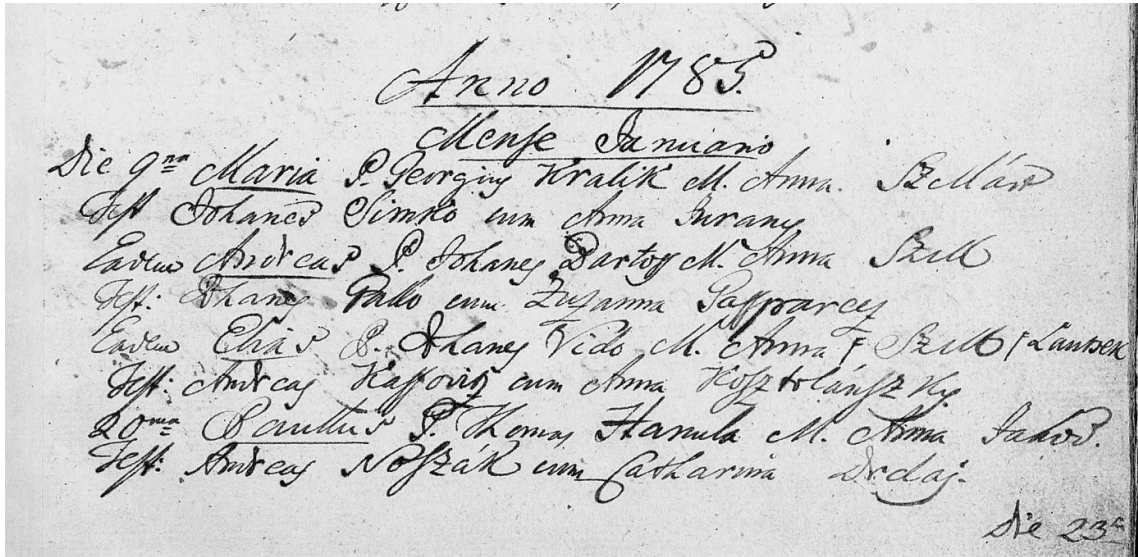 Anno 1785.
Mense Januario
Die 9na Maria P. Georgius Kralik M. Anna
Test Johanes Simko cum Anna Jurany
Eadem Andreas P. Johanes Bartos M. Anna
Test: Johanes Gallo cum Zusanna
Eadem Elias P. Johanes Vido M. Anna
Test: Andreas cum Anna Kosztolánszky.
20ma Paullus P. Thomas Hanula M. Anna
Test: Andreas Noszák cum Catharina
Die 23a